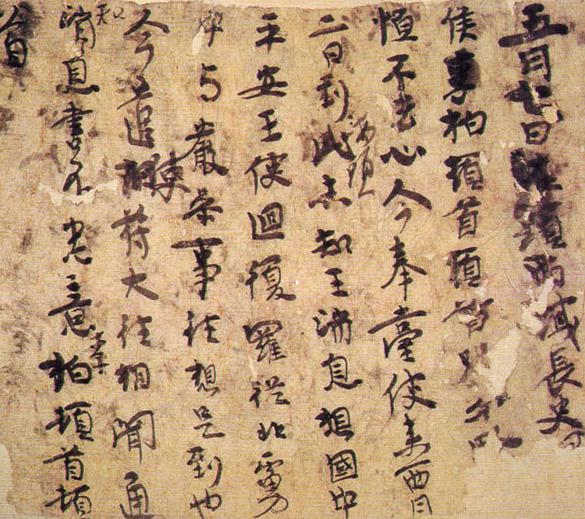 五月七日海頭西域長史
侯李柏頓首頓首別
恒不去心今奉臺使來西月
二日到此海頭未知王消息想國中
平安王使迴復羅從北虜
中與嚴參事往想是到也
今遣使苻大往相聞通
知消息書不悉意李柏頓首頓
首